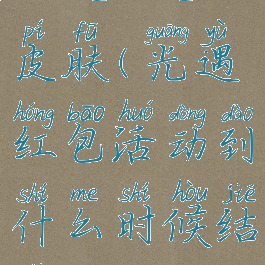 pí fū guāng yù
皮肤(光遇
hóng bāo huó dòng dào
红包活动到
shí me shí hòu jié
什么时候结